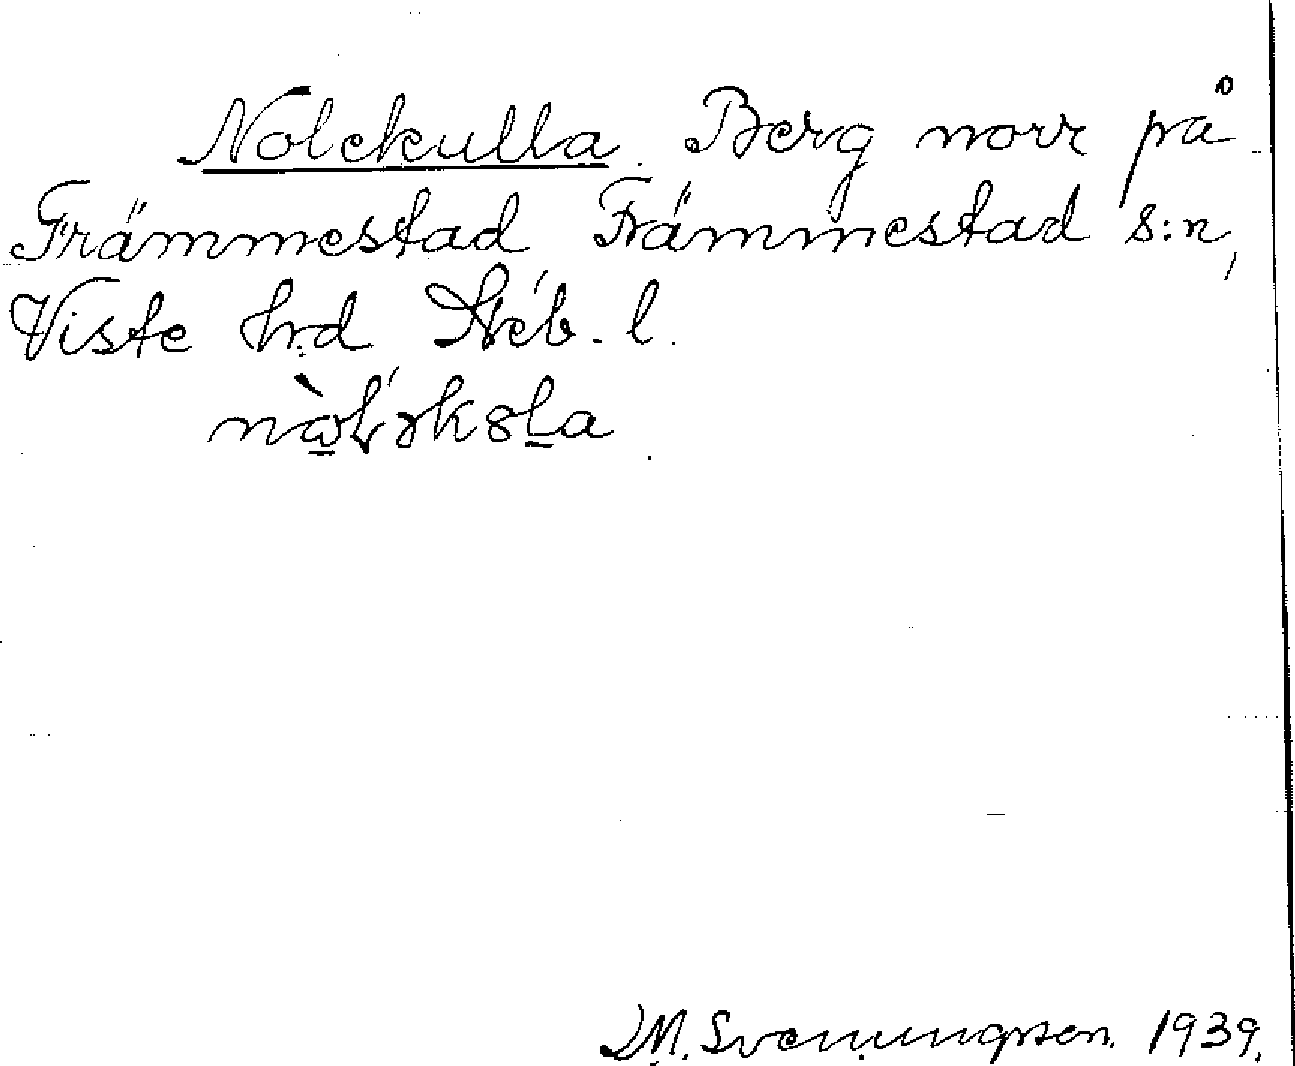 Nolekulla. Berg norr på
Främmestad Främmestad s:n,
Viste hrd Älvb. l.
D.M. Svenningsson. 1939.